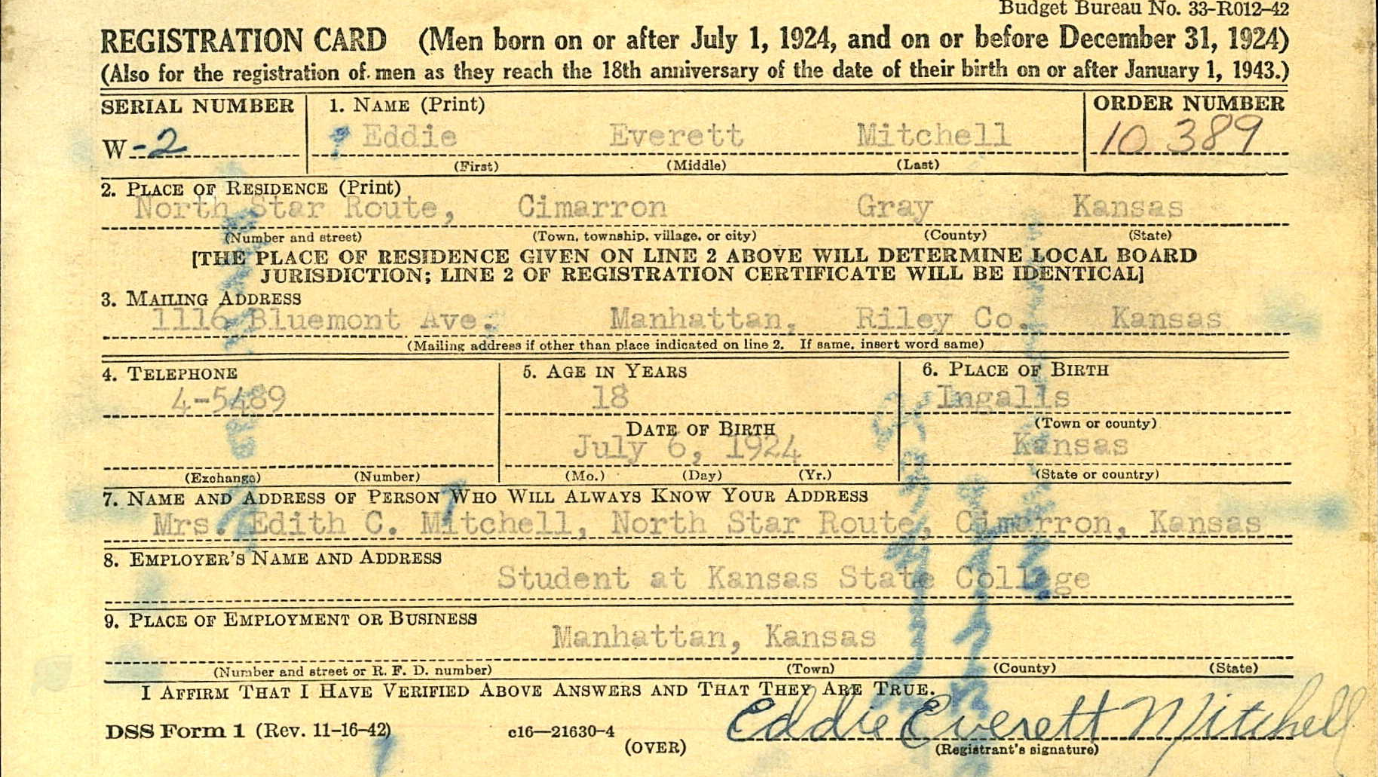 Budget Bureau No. 33-R012-42
REGISTRATION CARD (Men born on or after July 1, 1924, and on or before December 31, 1924)
(Also for the registration of men as they reach the 18th anniversary of the date of their birth on or after January 1, 1943.)
SERIAL NUMBER 1. NAME (Print) ORDER NUMBER
W-2 Eddie Everett Mitchell 10389
(First) (Middle) (Last)
2. PLACE OF RESIDENCE (Print)
North Star Route, Cimarron Gray Kansas
(Number and street) (Town, township, village, or city) (County) (State)
[THE PLACE OF RESIDENCE GIVEN ON LINE 2 ABOVE WILL DETERMINE LOCAL BOARD
JURISDICTION; LINE 2 OF REGISTRATION CERTIFICATE WILL BE IDENTICAL]
3. MAILING ADDRESS
1116 Bluemont Ave. Manhattan, Riley Co. Kansas
(Mailing address if other than place indicated on line 2. If same, insert word same)
4. TELEPHONE 5. AGE IN YEARS 6. PLACE OF BIRTH
4-5489 18 Ingalls
(Town or county)
DATE OF BIRTH
July 6, 1924 Kansas
(Exchange) (Number) (Mo.) (Day) (Yr.) (State or country)
7. NAME AND ADDRESS OF PERSON WHO WILL ALWAYS KNOW YOUR ADDRESS
Mrs. Edith C. Mitchell, North Star Route, Cimarron, Kansas
8. EMPLOYER'S NAME AND ADDRESS
Student at Kansas State College
9. PLACE OF EMPLOYMENT OR BUSINESS
Manhattan, Kansas
(Number and street or R. F. D. number) (Town) (County) (State)
I AFFIRM THAT I HAVE VERIFIED ABOVE ANSWERS AND THAT THEY ARE TRUE.
DSS Form 1 (Rev. 11-16-42) c16—21630-4 Eddie Everett Mitchell
(OVER) (Registrant's signature)